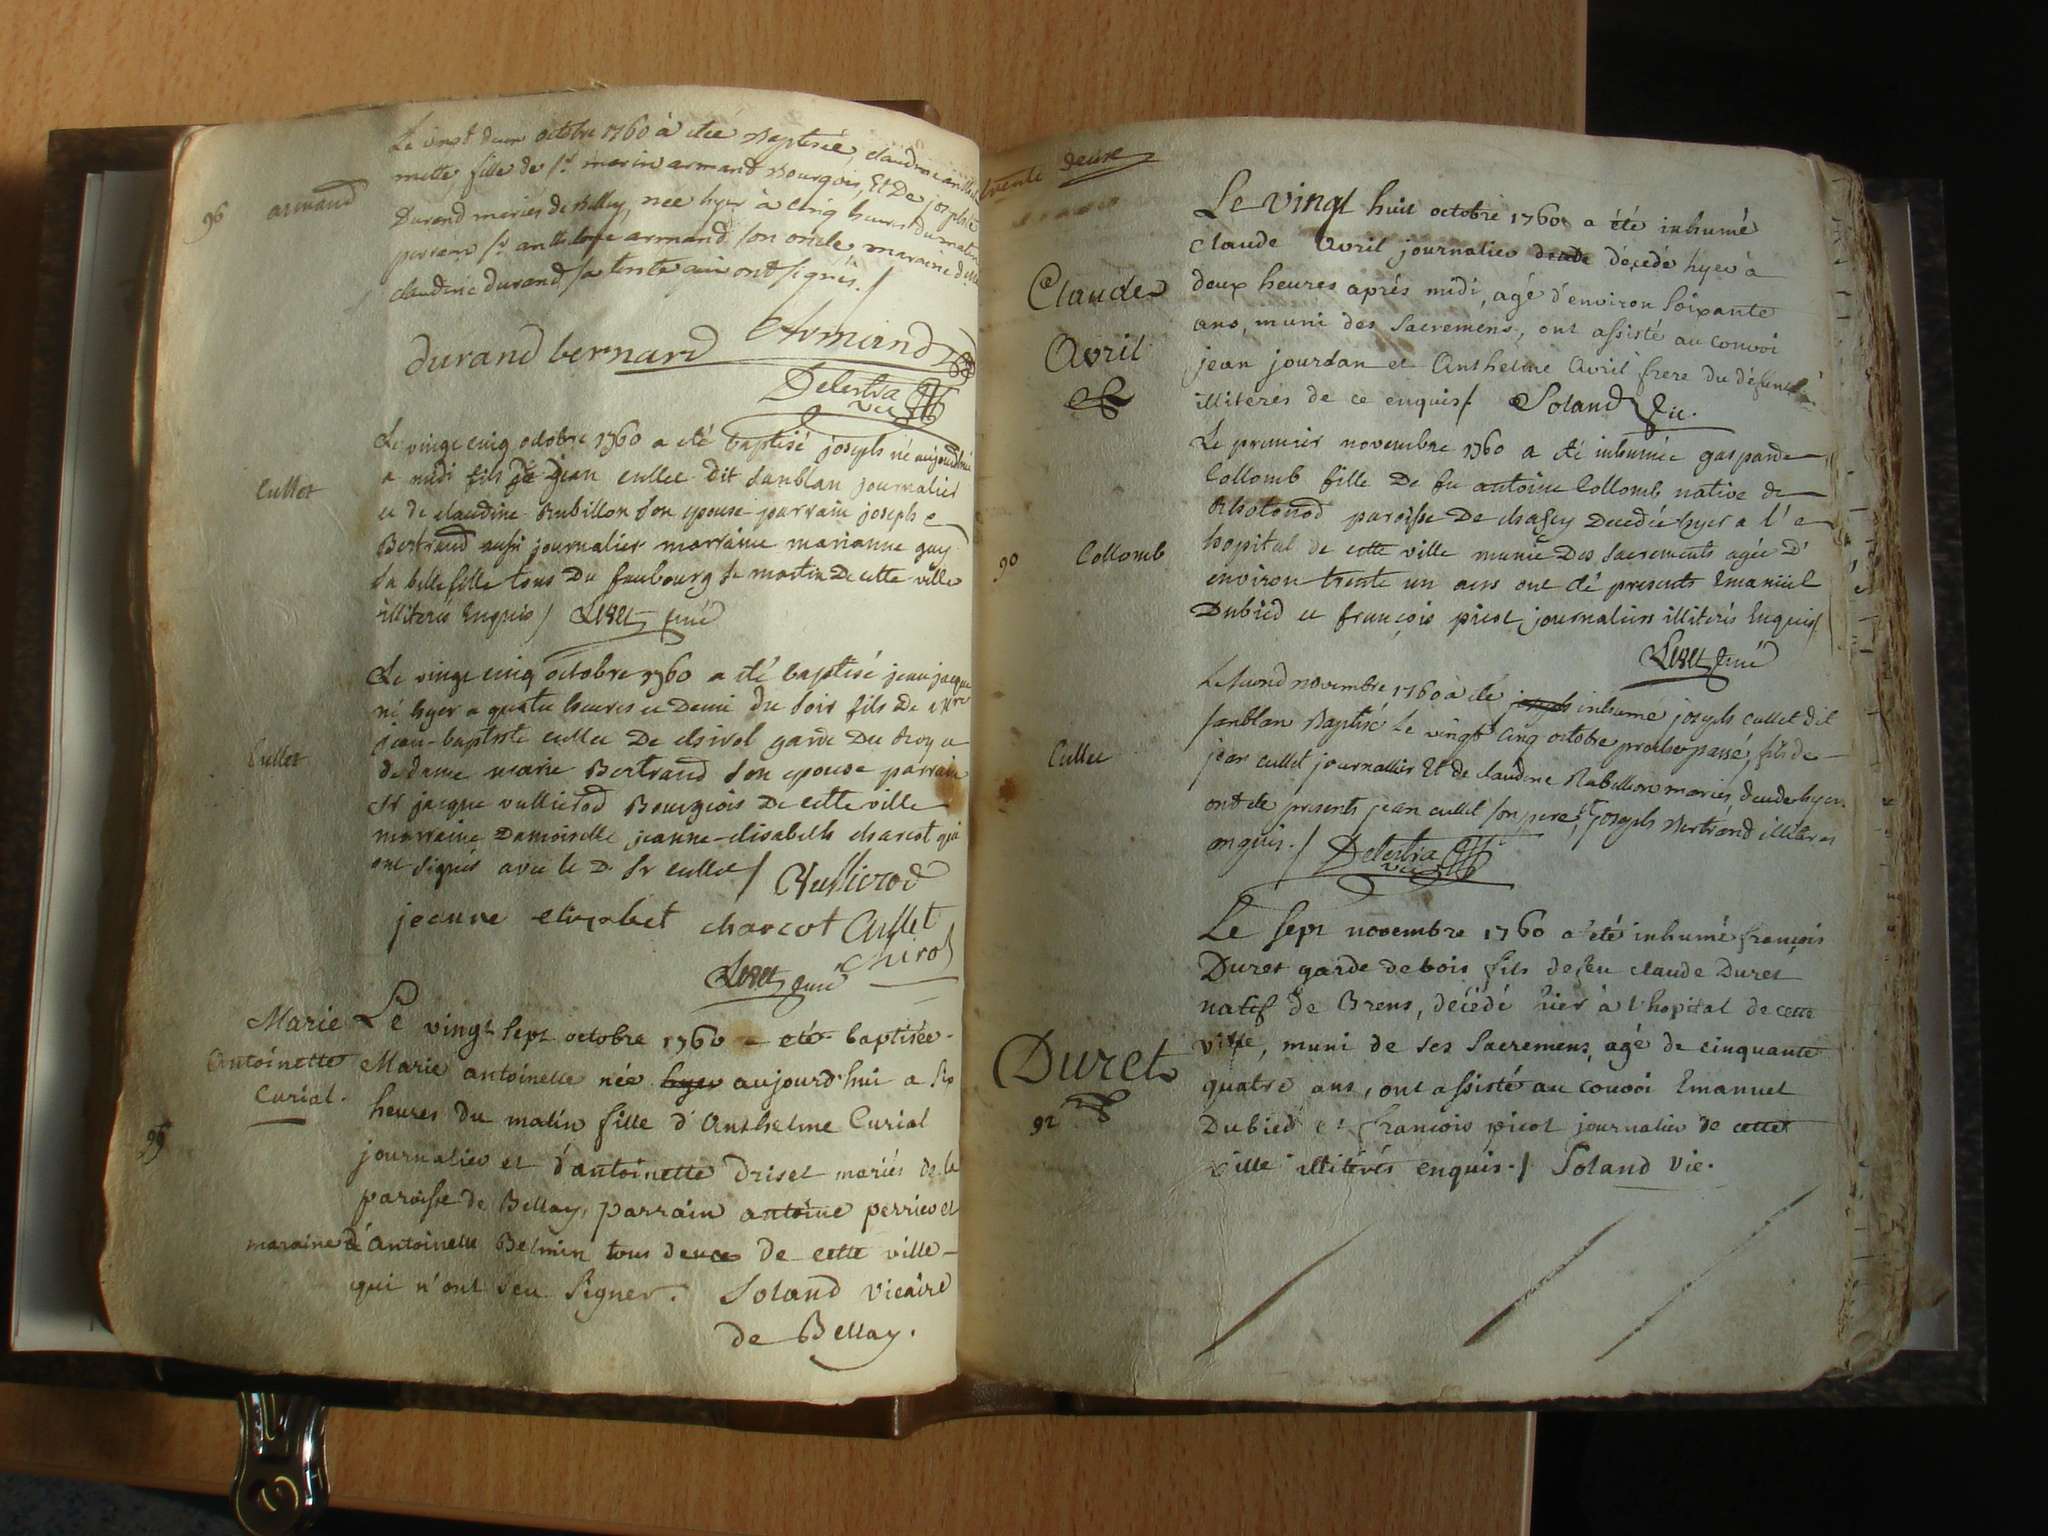 96 armand
Le vingt deux octobre 1760 à étée Baptisée, claudine
mette, fille de Sr. marin armand Bourgois, Et De josephte
Durand mariés de Belley, née hyer à cinq heures du matin
parrein Sr. anthelme armand son oncle maraine
claudine durand sa tente qui ont signés./
durand bernard Armand
Delestra vic
Cullet
Le vingt cinq octobre 1760 a eté baptisé joseph né aujourdhui
a midi fils De jean cullet dit sanblan journalier
et de claudine Rubillon son epouse parrain joseph
Bertrand aussi journalier marraine marianne guy
sa belle fille tous Du faubourg St martin De cette ville
illiterés Enquis/ curé
Cullet
Le vingt cinq octobre 1760 a eté baptisé jean jacque
né hyer a quatre heures et Demi du soir fils De
jean-baptiste cullet De chirol garde Du Roy et
de dame marie Bertrand son epouse parrain
Sr jacque vullierod Bourgeois De cette ville
marraine Damoiselle jeanne-elisabeth charcot qui
ont signés avec le D. Sr cullet/ Vullierod
jeanne elizabet charcot Cullet
chirol
curé
Marie
Antoinette
Curial.
Le vingt sept octobre 1760 a eté baptisée
Marie antoinette née hyer aujourd'hui a six
heures du matin fille d'Anthelme Curial
journalier et d'antoinette Driset mariés de la
paroisse de Bellay, parrain antoine perrier et
maraine d'Antoinette Belmin tous deux de cette ville
qui n'ont seu signer. Soland vicaire
de Bellay.
trente deux
Claude
Avril
Le vingt huit octobre 1760 a été inhumé
claude Avril journalier décédé hyer à
deux heures aprés midi, agé d'environ soixante
ans, muni des sacremens, ont assisté au convoi
jean jourdan et Anthelme Avril frere du défunct
illiterés de ce enquis/ Soland Vic.
90 Collomb
Le premier novembre 1760 a eté inhumée gasparde
Collomb fille De fu antoine Collomb native de
Rhotonod paroisse De chasey Decedée hyer a l'
hopital de cette ville munie Des sacrements agée D'
environ trente un ans ont eté presents Emanüel
Dubied et françois picot journaliers illiterés Enquis/
curé
Cullet
Le second novembre 1760 à eté joseph inhumé joseph cullet dit
sanblan Baptisé Le vingt cinq octobre proche passé, fils de
jean cullet journallier Et de claudine Rabillion mariés, décedé hyer
ont eté presents jean cullet son pere, Et joseph Bertrand illiteres
enquis./ Delestra vic
Duret
92
Le sept novembre 1760 a été inhumé françois
Duret garde de bois fils de feu claude Duret
natif de Brens, décédé hier à l'hopital de cette
ville, muni de ses sacremens, agé de cinquante
quatre ans, ont assisté au convoi Emanuel
Dubied et françois picot journalier de cette
ville illitérés enquis./ Soland Vic.